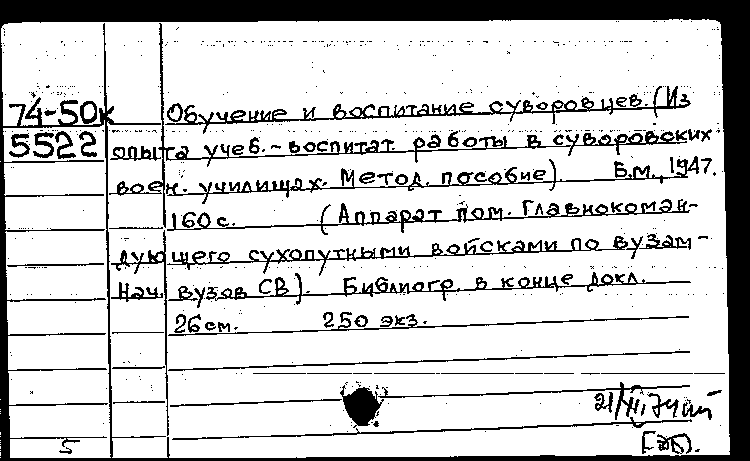 74-50к Обучение и воспитание суворовцев. (Из
5522 опыта учеб.-воспитат. работы в суворовских
воен. училищах. Метод. пособие). Б.М., 1947.
160 с. (Аппарат пом. Главнокоман-
дующего сухопутными войсками по вузам-
Нач. вузов СВ). Библиогр. в конце докл.
26 см. 250 экз.
5